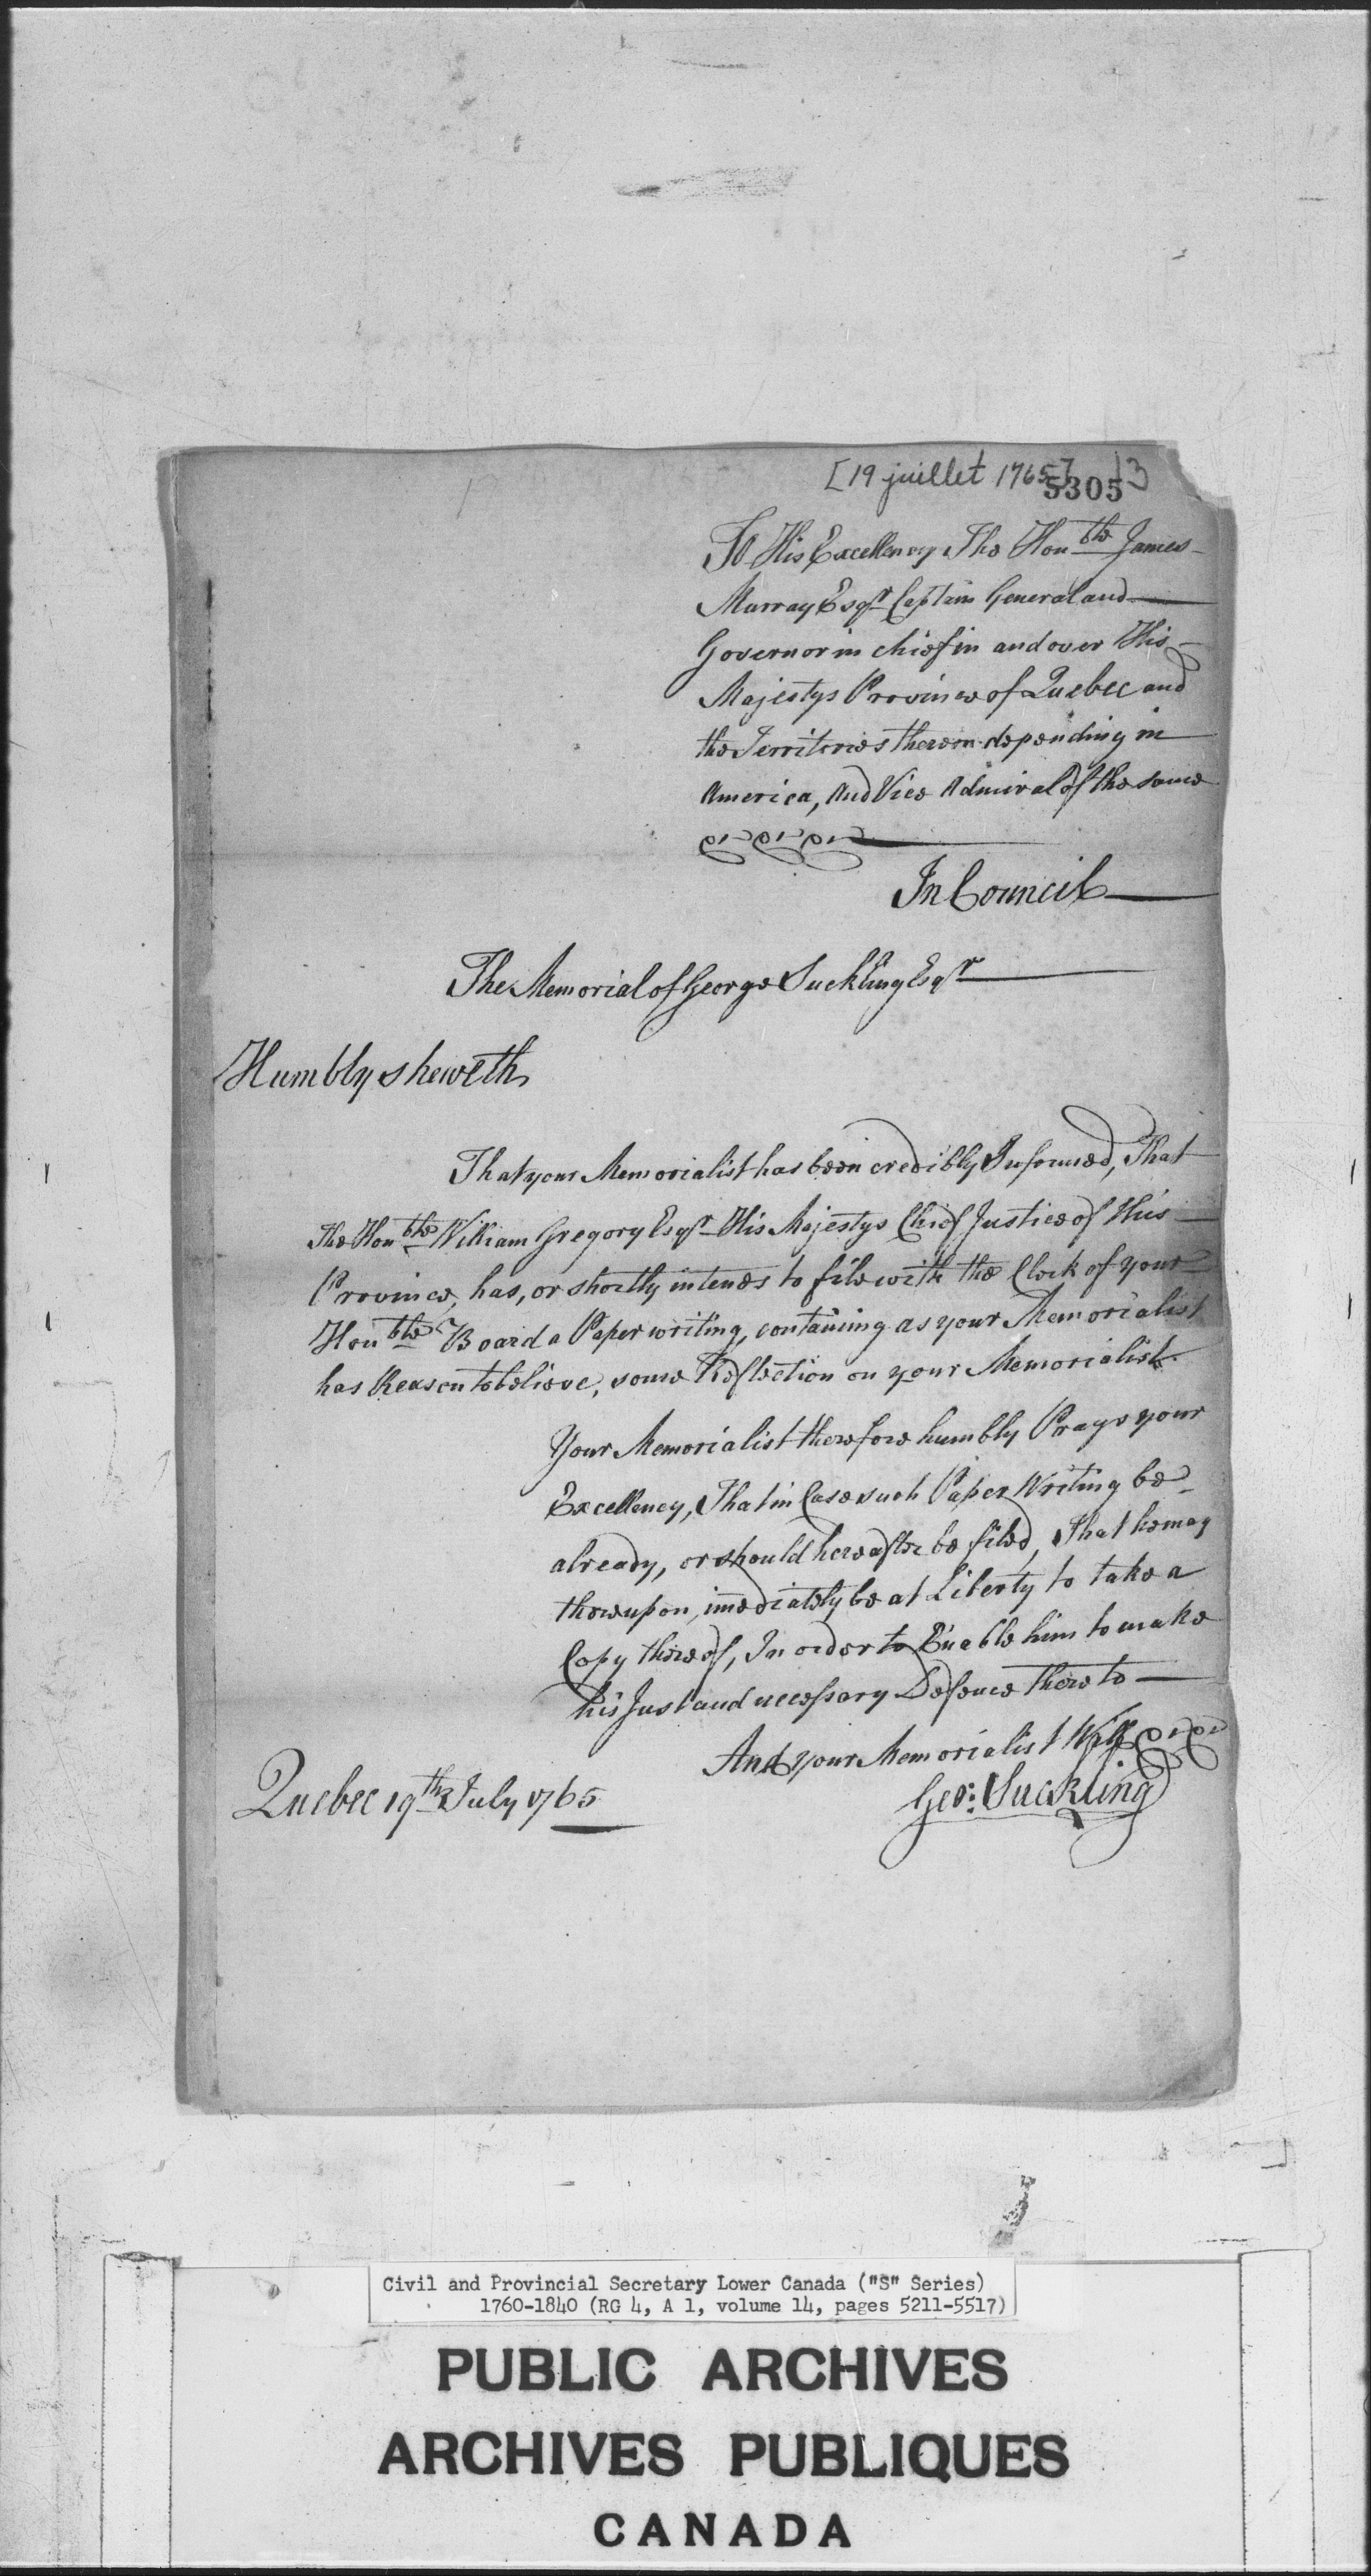 [19 juillet 1765]
5305
13
To His Excellency The Honble James
Murray Esqr Captain General and
Governor in chief in and over His
Majestys Province of Quebec and
the Territories thereon depending in
America, and Vice Admiral of the same
&c &c &c
In Council
The Memorial of George Suckling Esqr
Humbly sheweth
That your Memorialist has been credibly Informed, That
The Honble William Gregory Esqr His Majestys Chief Justice of this
Province, has, or shortly intends to file with the Clerk of your
Honble Board a Paper writing, containing as your Memorialist
has Reason to believe, some Reflection on your Memorialist.
Your Memorialist therefore humbly Prays your
Excellency, That in Case such Paper Writing be
already, or should hereafter be filed, That he may
thereupon, imediately be at Liberty to take a
Copy thereof, In order to Enable him to make
his Just and necessary Defence thereto
And your Memorialist Will &c &c
Quebec 19th July 1765
Geo: Suckling
Civil and Provincial Secretary Lower Canada ("S" Series)
1760-1840 (RG 4, A 1, volume 14, pages 5211-5517)
PUBLIC ARCHIVES
ARCHIVES PUBLIQUES
CANADA